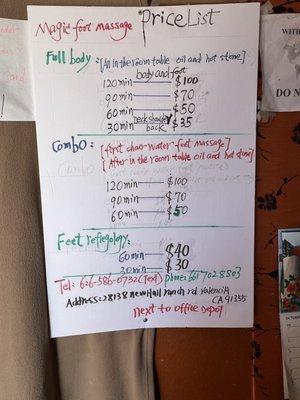 Magic foot massage PriceList
Full body: [All in the room table oil and hot stone]
body and feet
120 min $100
90 min $70
60 min $50
30 min neck shoulder back $35
Combo: [first chao-water-feet massage]
[After in the room table oil and hot stone]
120 min $100
90 min $70
60 min $50
Feet reflegology:
60 min $40
30 min $30
Tel: 626-586-0732 (Text) phone: 661 702 8803
Address: 28138 newHall ranch rd valenciA
CA 91355
next to office Depot
DO N